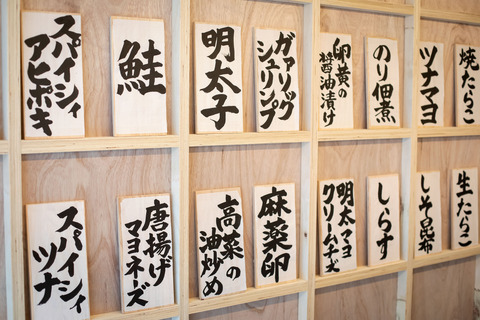 焼たらこ
ツナマヨ
のり佃煮
卵黄の
醤油漬け
ガァリック
シュリンプ
明太子
鮭
スパイシィ
アヒポキ
生たらこ
しそ昆布
しらす
明太マヨ
クリームチーズ
麻薬卵
高菜の
油炒め
唐揚げ
マヨネーズ
スパイシィ
ツナ